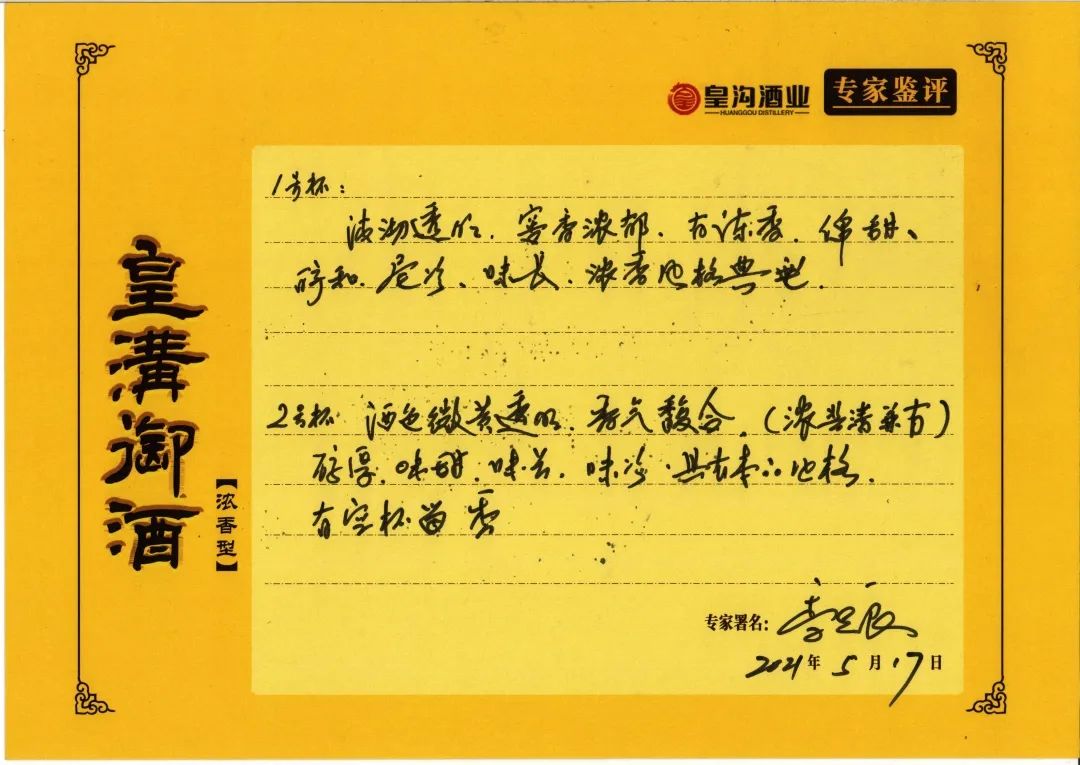 皇沟酒业
HUANGGOU DISTILLERY
专家鉴评
皇溝御酒
【浓香型】
1号杯：
清澈透明、窖香浓郁、有陈香、绵甜、
醇和、尾净、味长、浓香风格典型.
2号杯 酒色微黄透明、香气馥合、（浓酱清兼有）
醇厚、味甜、味长、味净、具有本品风格.
有空杯留香
专家署名：
2021年5月17日